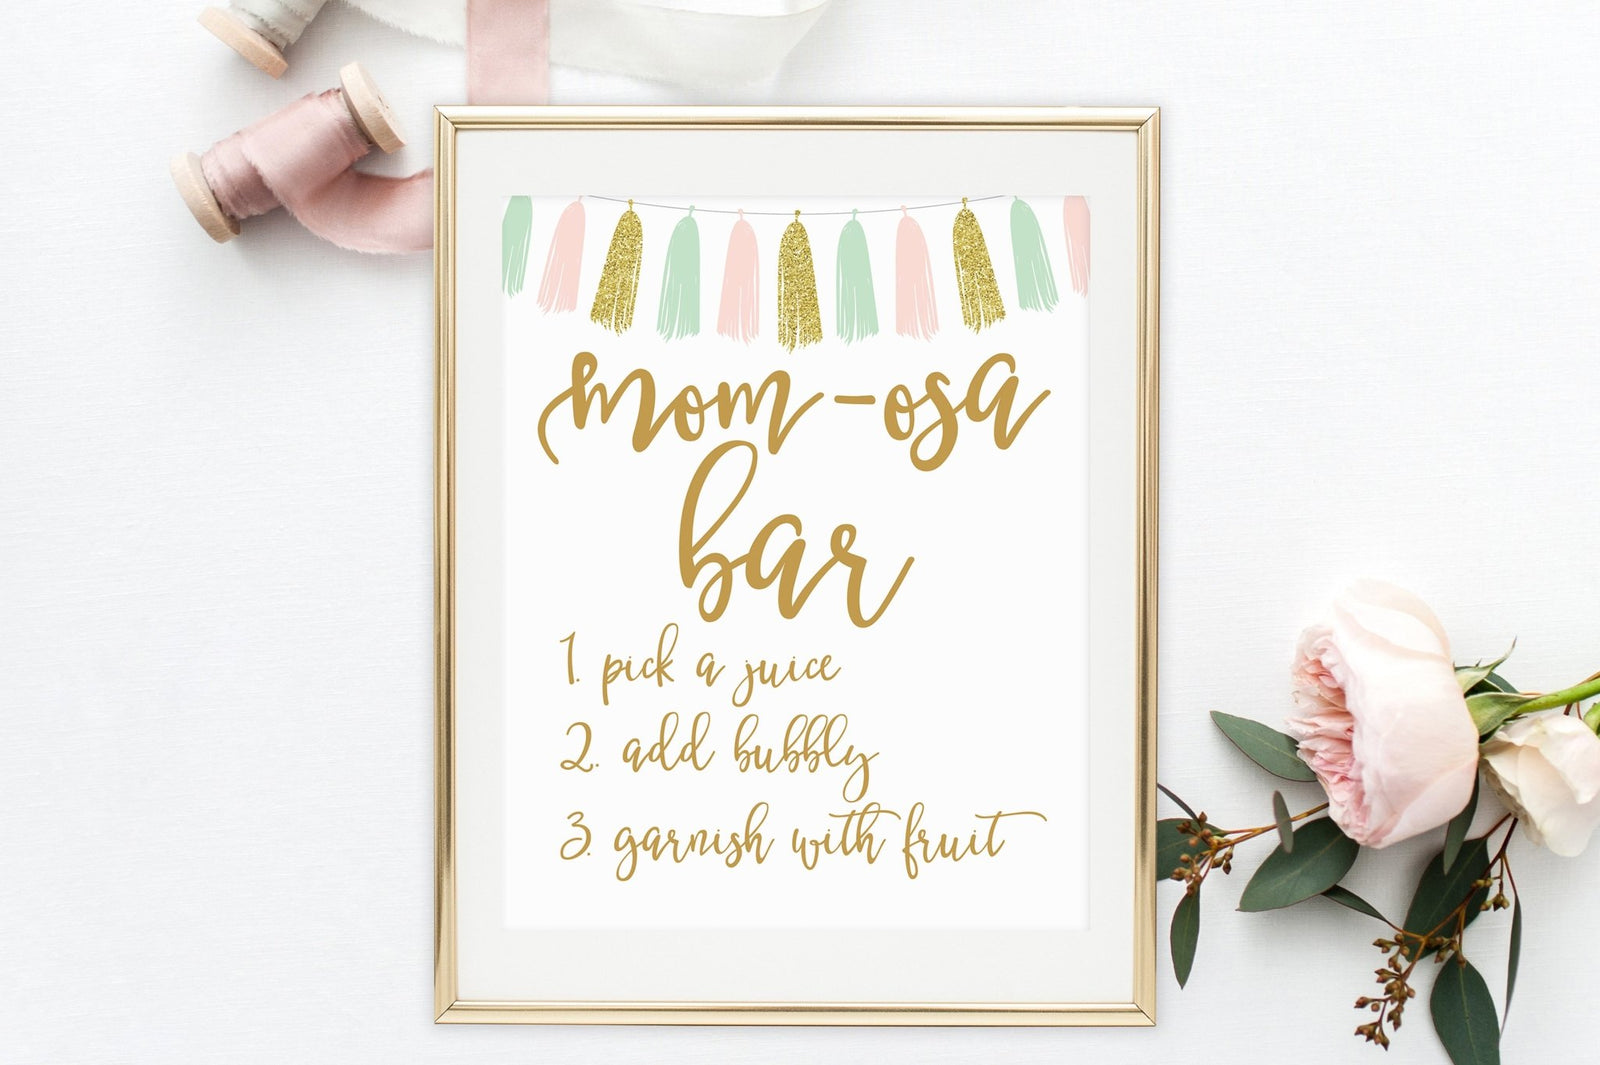 mom-osa
bar
1. pick a juice
2. add bubbly
3. garnish with fruit